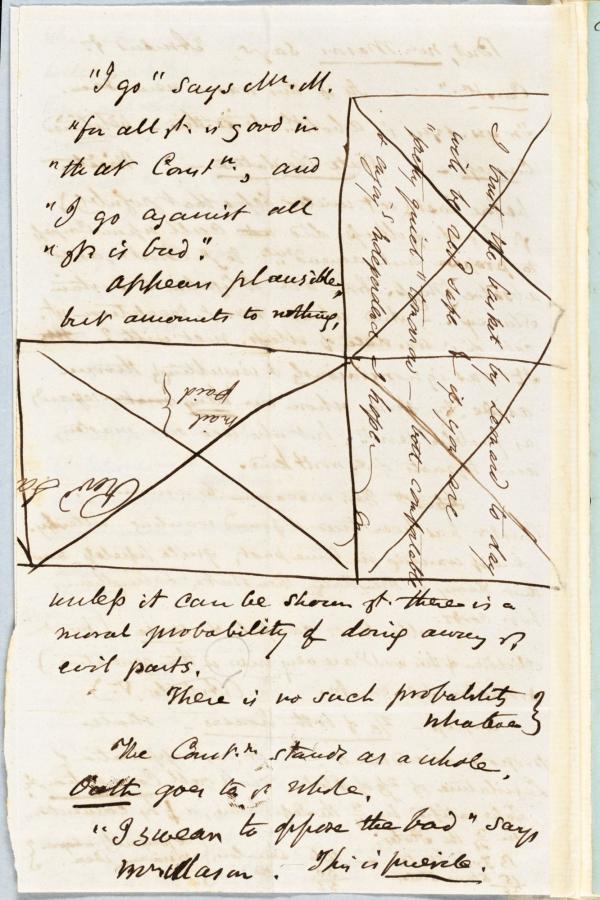 "I go" says Mr. M.
"for all yt. is good in
"that Constn., and
"I go against all
"yt. is bad."
Appears plausible,
but amounts to nothing,
I trust the basket by Leonard to day
will by
"pretty quiet" tomorrow — both comfortable
& independent I hope.
mail
paid
Rev'd Sa
unless it can be shown yt. there is a
moral probability of doing away ye
evil parts.
There is no such probability
whatever
The Constn. stands as a whole.
Oath goes to ye whole.
"I swear to oppose the bad" says
Mr Mason. This is puerile.